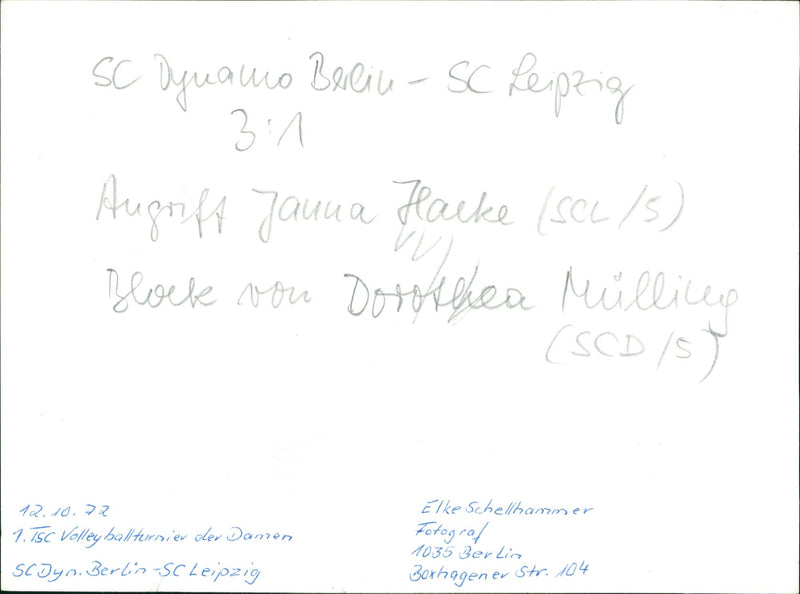 SC Dynamo Berlin – SC Leipzig
3:1
Angriff Janna Hacke (SCL/5)
Block von Dorothea Mülling
(SCD/5)
12.10.72
1. TSC Volleyballturnier der Damen
SC Dyn. Berlin - SC Leipzig
Elke Schellhammer
Fotograf
1035 Berlin
Boxhagener Str. 104